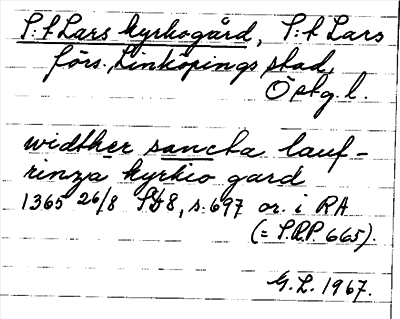 S:t Lars kyrkogård, S:t Lars
förs. Linköpings stad.
Östg. l.
widther sancta lauf-
rinza kyrkio gard
1365 26/8 SD8, s. 697 or. i RA
(= S.R.P. 665).
G.L. 1967.